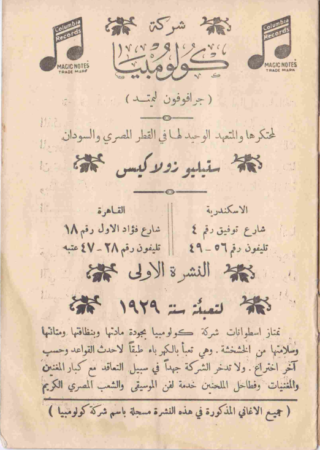 Columbia Records
MAGIC NOTES
TRADE MARK
شركة
كولومبيا
Columbia Records
MAGIC NOTES
TRADE MARK
( جرافوفون ليمتد )
لمحتكرها والمتعهد الوحيد لها في القطر المصري والسودان
ستيليو زولاكيس
الاسكندرية
شارع توفيق رقم ٤
تليفون رقم ٥٦ — ٤٩
القاهرة
شارع فؤاد الاول رقم ١٨
تليفون رقم ٢٨ – ٤٧ عتبه
النشرة الاولى
لتعبئة سنة ١٩٢٩
تمتاز اسطوانات شركة كولومبيا بجودة مادتها وبنظافتها ومتانتها
وسلامتها من الخشخشة . وهي تعبأ بالكهرباء طبقاً لاحدث القواعد وحسب
آخر اختراع . ولا تدخر الشركة جهداً في سبيل التعاقد مع كبار المغنين
والمغنيات وفطاحل الملحنين خدمة لفن الموسيقى والشعب المصري الكريم
( جميع الاغاني المذكورة في هذه النشرة مسجلة باسم شركة كولومبيا )